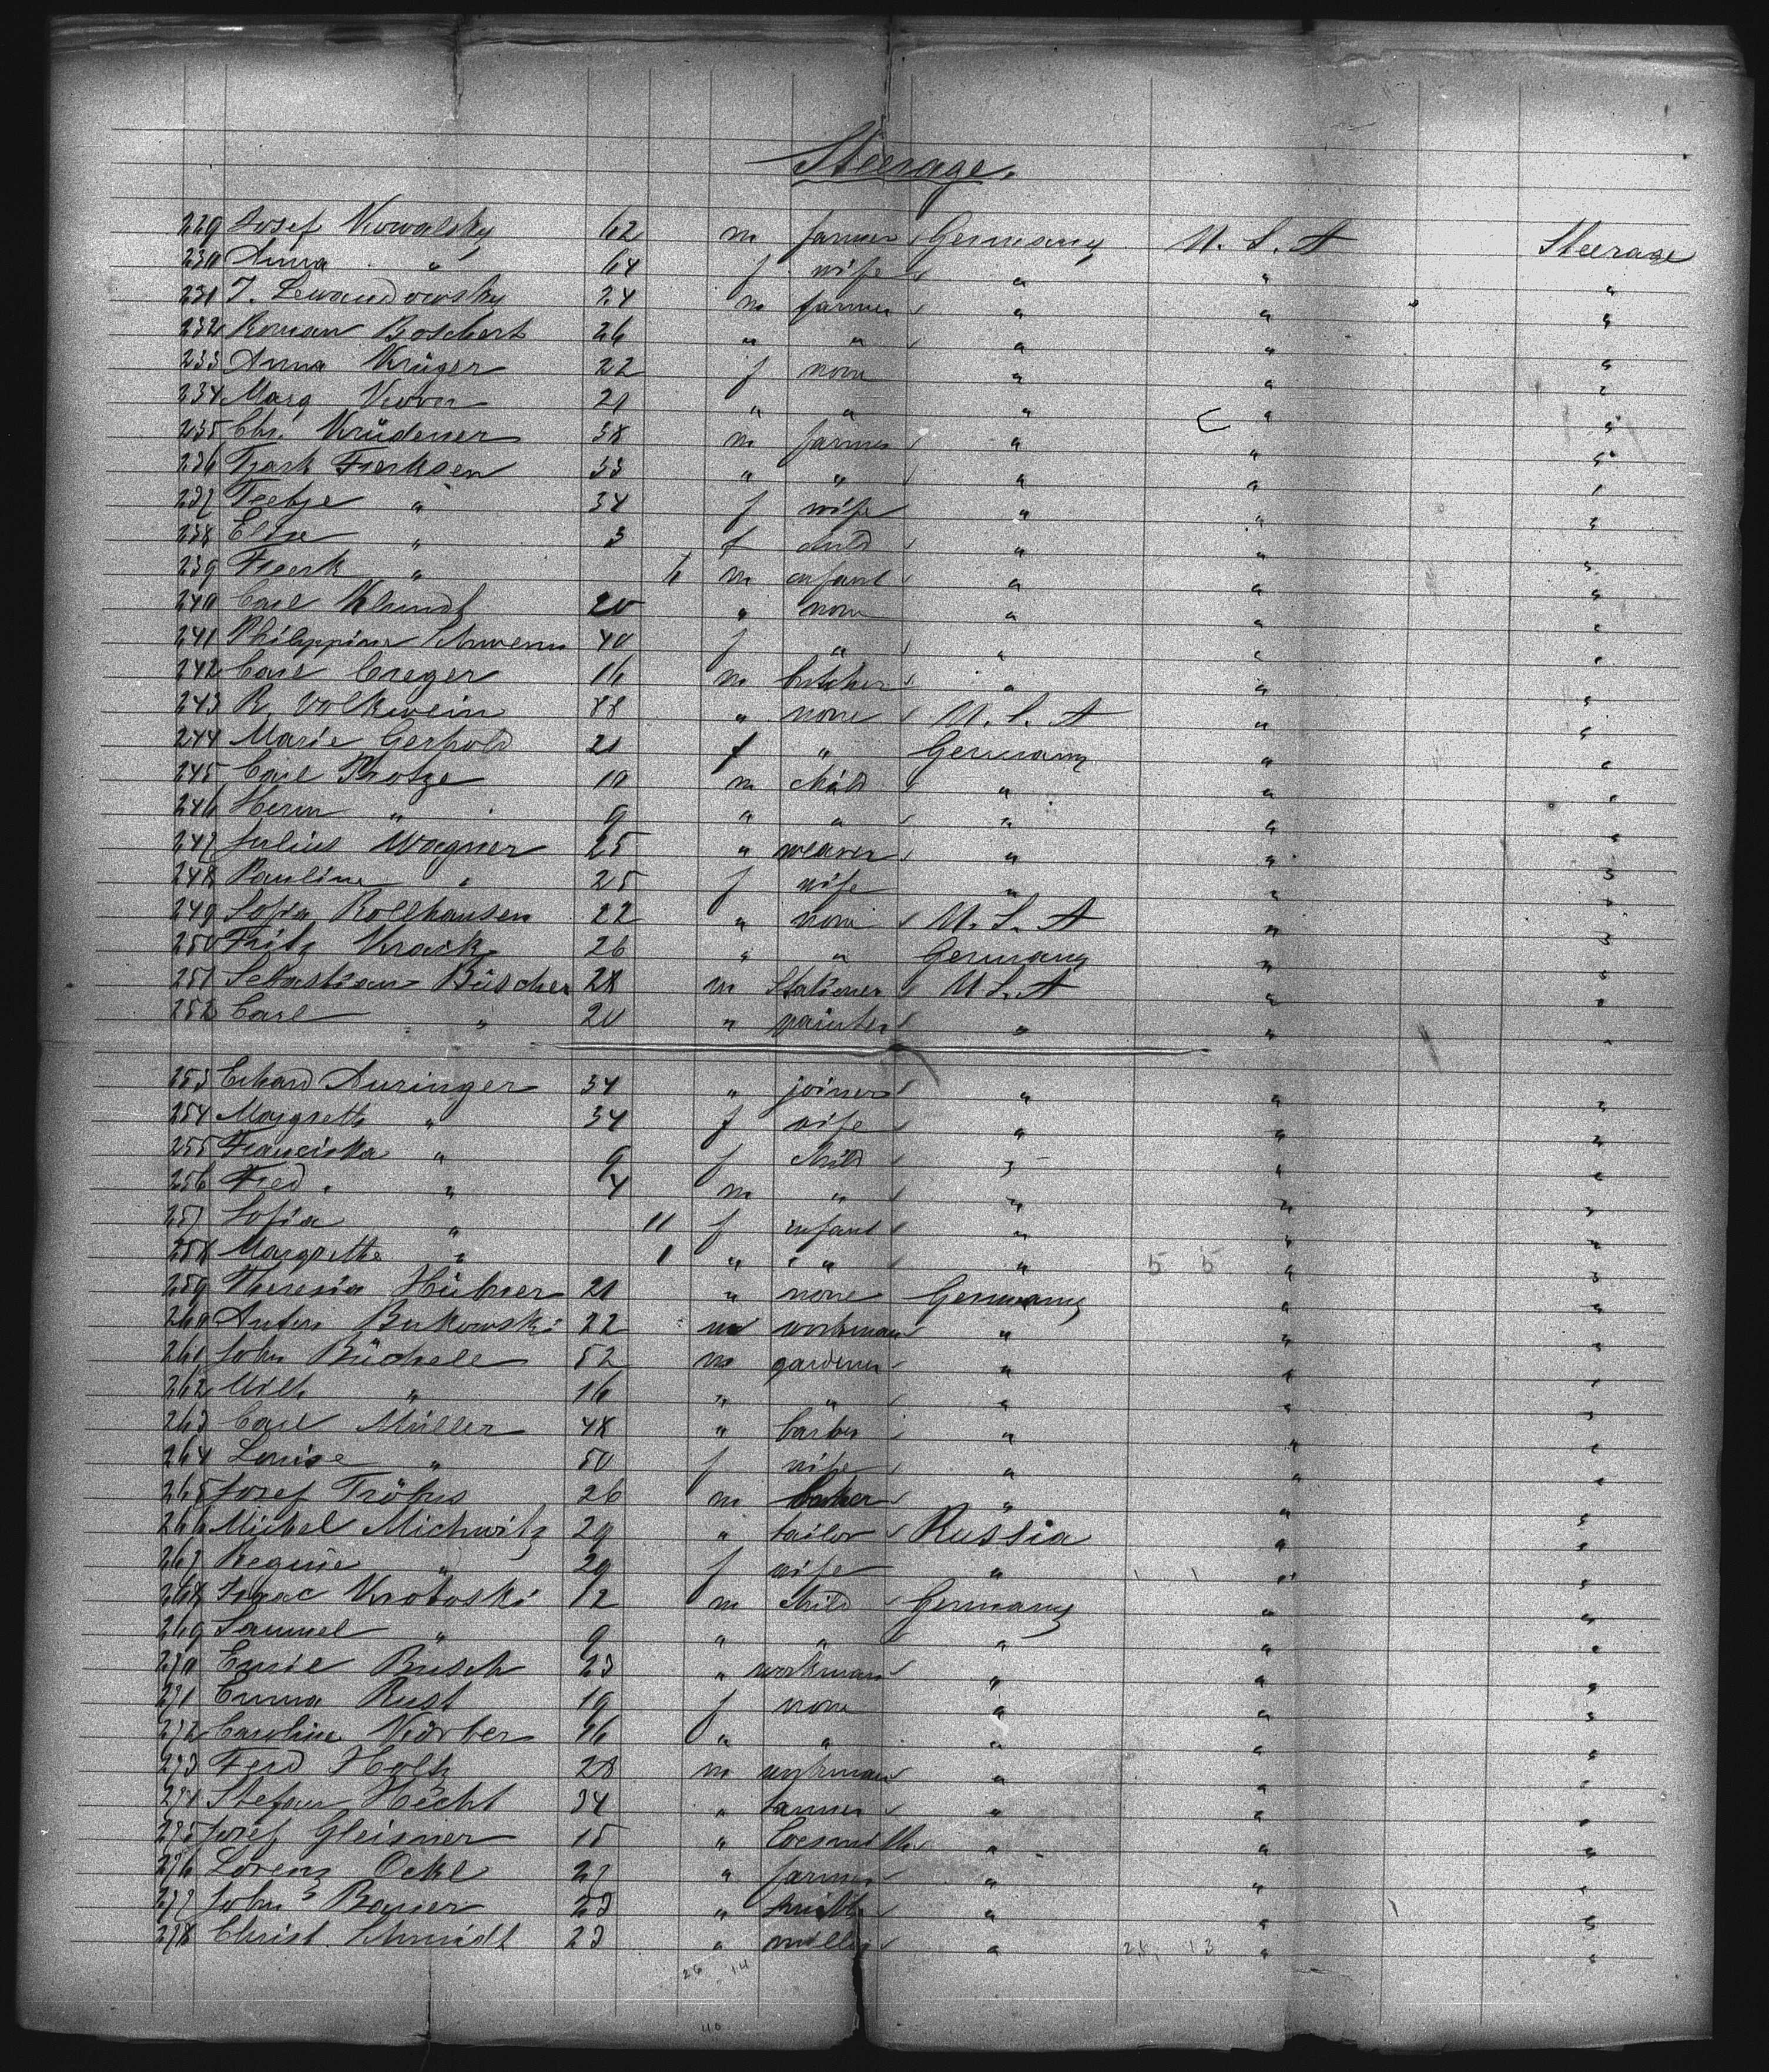 Steerage.
229 Josef Kowalsky 62 m farmer Germany U.S.A Steerage
230 Anna " 64 f wife " " "
231 J. Lewandowsky 24 m farmer " " "
232 Roman Boschert 26 " " " " "
233 Anna Krüger 22 f none " " "
234 Marg 21 " " " " "
235 Chr. Krüdener 38 m farmer " " "
236 Fierksen 33 " " " " "
237 Teebje " 34 f wife " " "
238 Elise " 3 f child " " "
239 Fierk " 6 m infant " " "
240 Carl Klundt 20 " none " " "
241 Philippine 40 f " " " "
242 Carl Creger 16 m butcher " " "
243 R. Volkwein 48 " none U.S.A " "
244 Marie Gerhold 21 f " Germany " "
245 Carl Trotze 10 m child " " "
246 Herm " 9 " " " " "
247 Julius Wagner 25 " weaver " " "
248 Pauline " 25 f wife " " "
249 Sofia Rollhausen 22 " none U.S.A " "
250 Fritz Krack 26 " " Germany " "
251 Sebastian Büscher 28 m Stationer U.S.A " "
252 Carl " 20 " painter " " "
253 Erhard Auringer 34 " joiner " " "
254 Margreth " 34 f wife " " "
255 Franciska " 9 f child " " "
256 Fred. " 4 m " " " "
257 Sofia " 11 f infant " " "
258 Margrethe " 1 " " " 5 5 " "
259 Theresia Hübner 21 " none Germany " "
260 Anton Bukowski 22 m workman " " "
261 John Büchele 52 m gardener " " "
262 Wilh " 16 " " " " "
263 Carl Müller 48 " barber " " "
264 Louise " 50 f wife " " "
265 Josef Tröbus 26 m " " "
266 Michel Michwitz 29 " tailor Russia " "
267 Regine " 29 f wife " " "
268 Isaac Krotoski 12 m child Germany " "
269 Samuel " 9 " " " " "
270 Emil Busch 23 " workman " " "
271 Emma Rust 19 f none " " "
272 Caroline Körber 36 " " " " "
273 Ferd Holtz 28 m workman " " "
274 Stefan Hecht 34 " tanner " " "
275 Josef Gleisner 15 " locsmith " " "
276 Lorenz Ockl 27 " farmer " " "
277 John Bauer 23 " smith " " "
278 Christ. Schmidt 23 " miller " 28, 13 " "
26 14
40